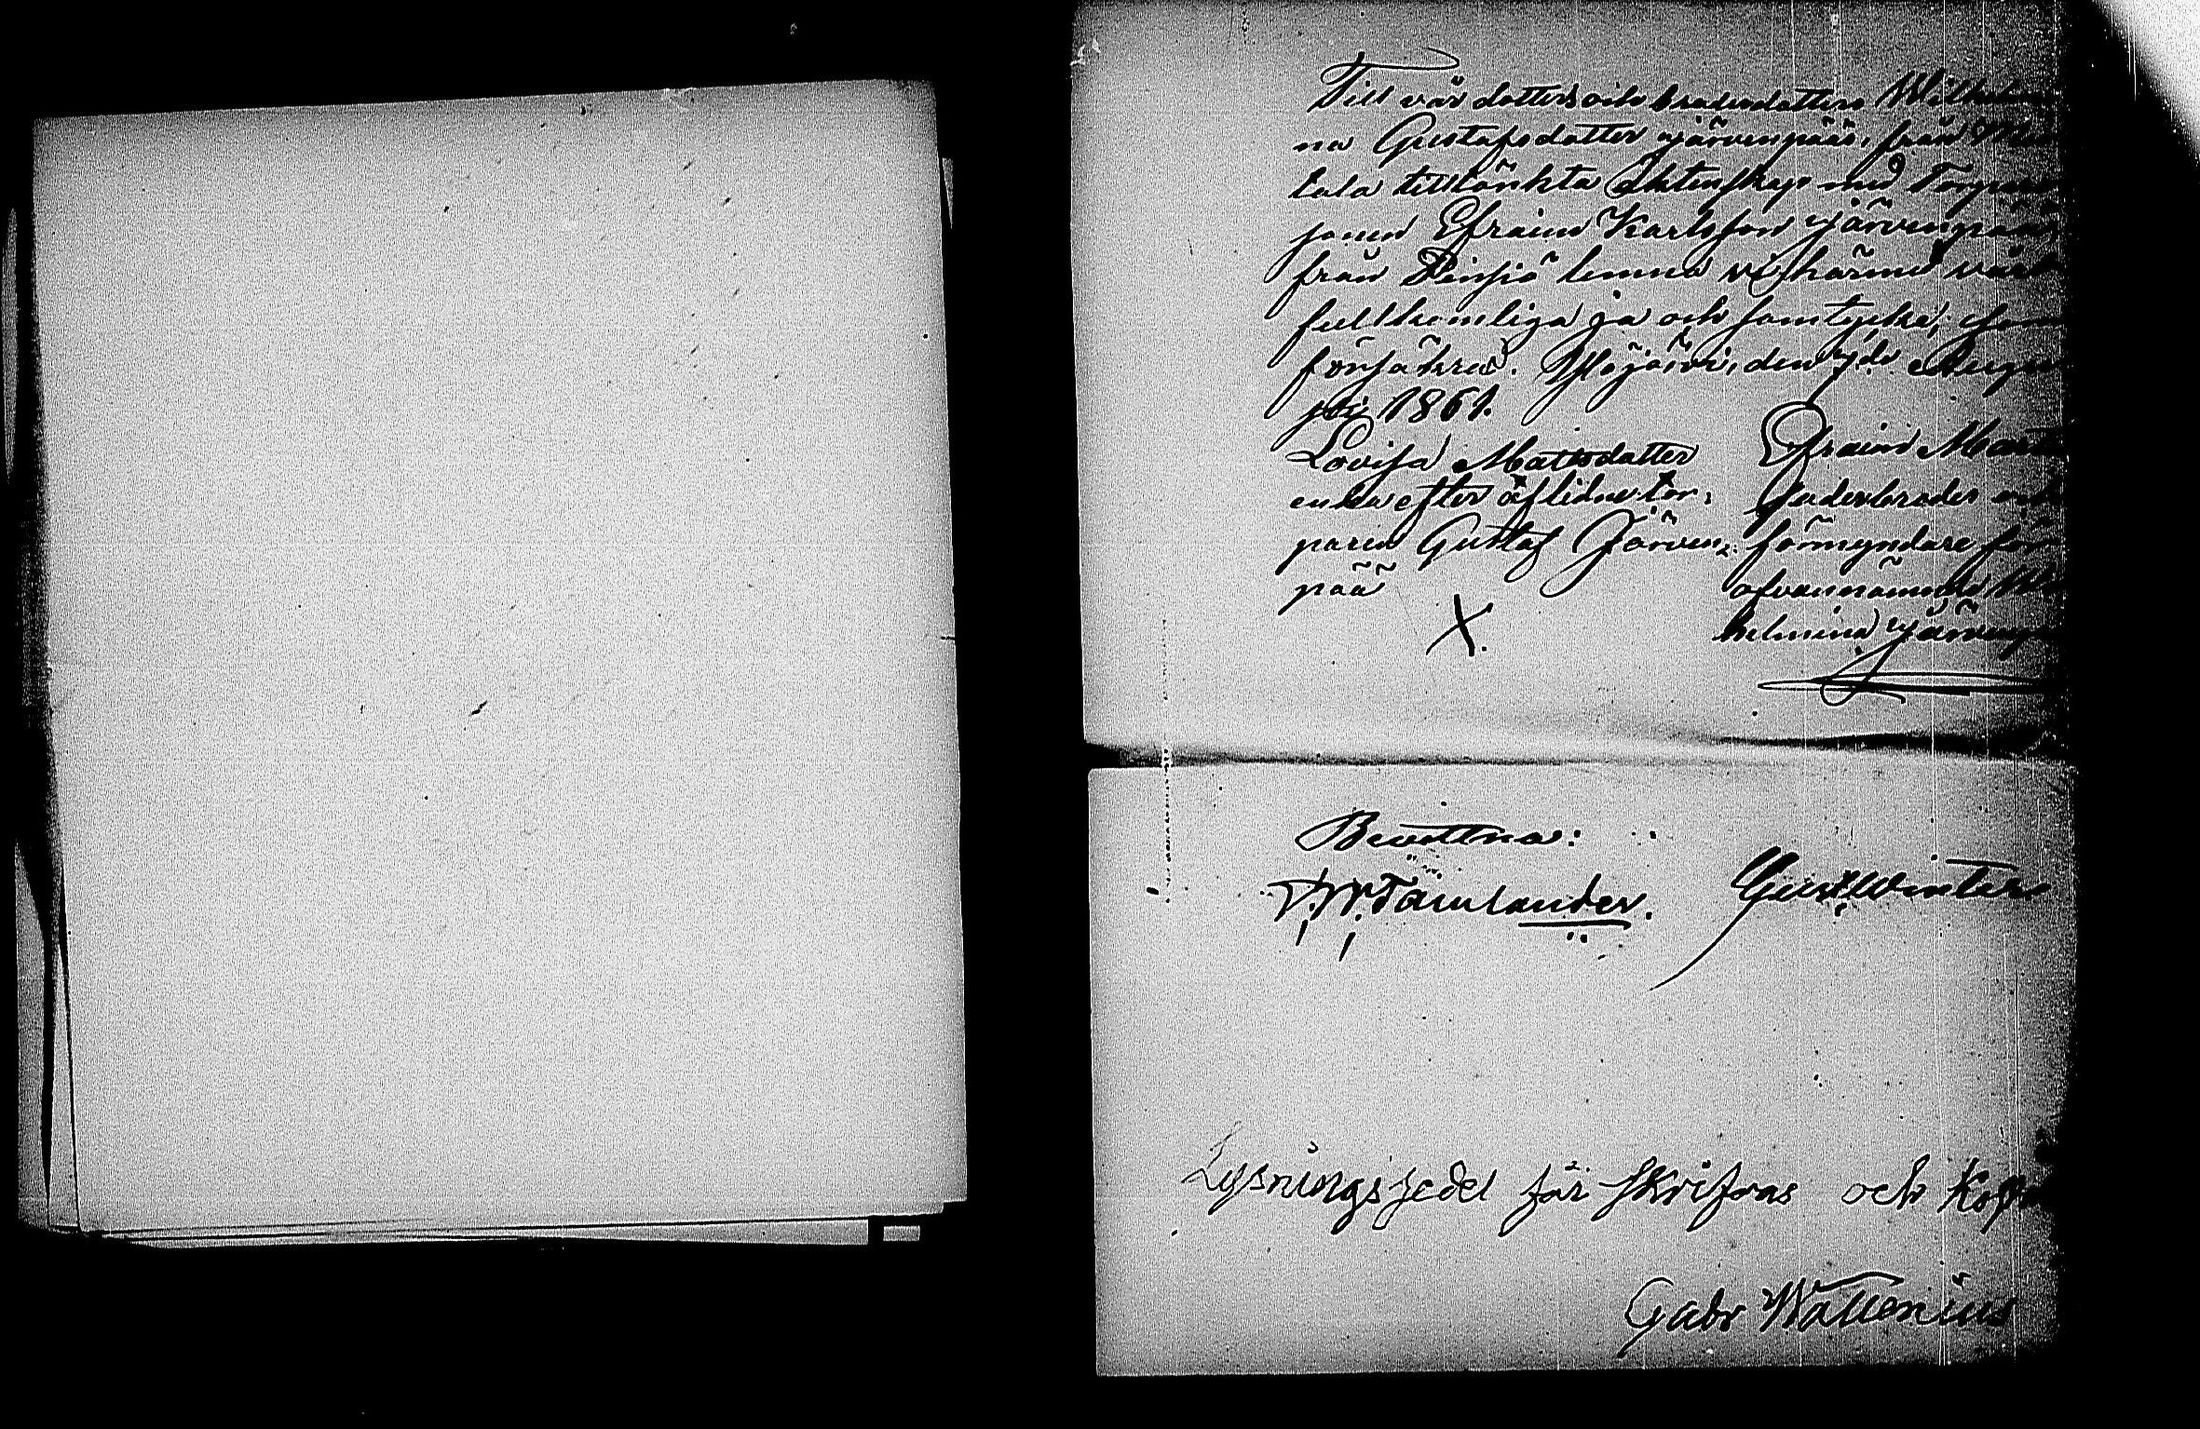 Till vår dotters och brodersdotters Wilhelmi
na Gustafsdotter Järvenpää, från
tala tilltänkta Äktenskap med Torpare
sonen Efraim Karlsson Järvenpää
från Pinsiö lemna vi härmed vårt
fullkomliga ja och samtycke, som
försäkras. Ylöjärvi, den 7de Augu
sti 1861.
Lovisa Matsdotter
enka efter aflidne tor-
paren Gustaf Järven-
pää
X.
Efraim
faderbroder och
förmyndare för
ofvannämnde Wil
helmina Järvenp
Bevittna:
Tämlander.
Gust Winter
Lysningssedel får skrifvas och
Gabr Wallenius